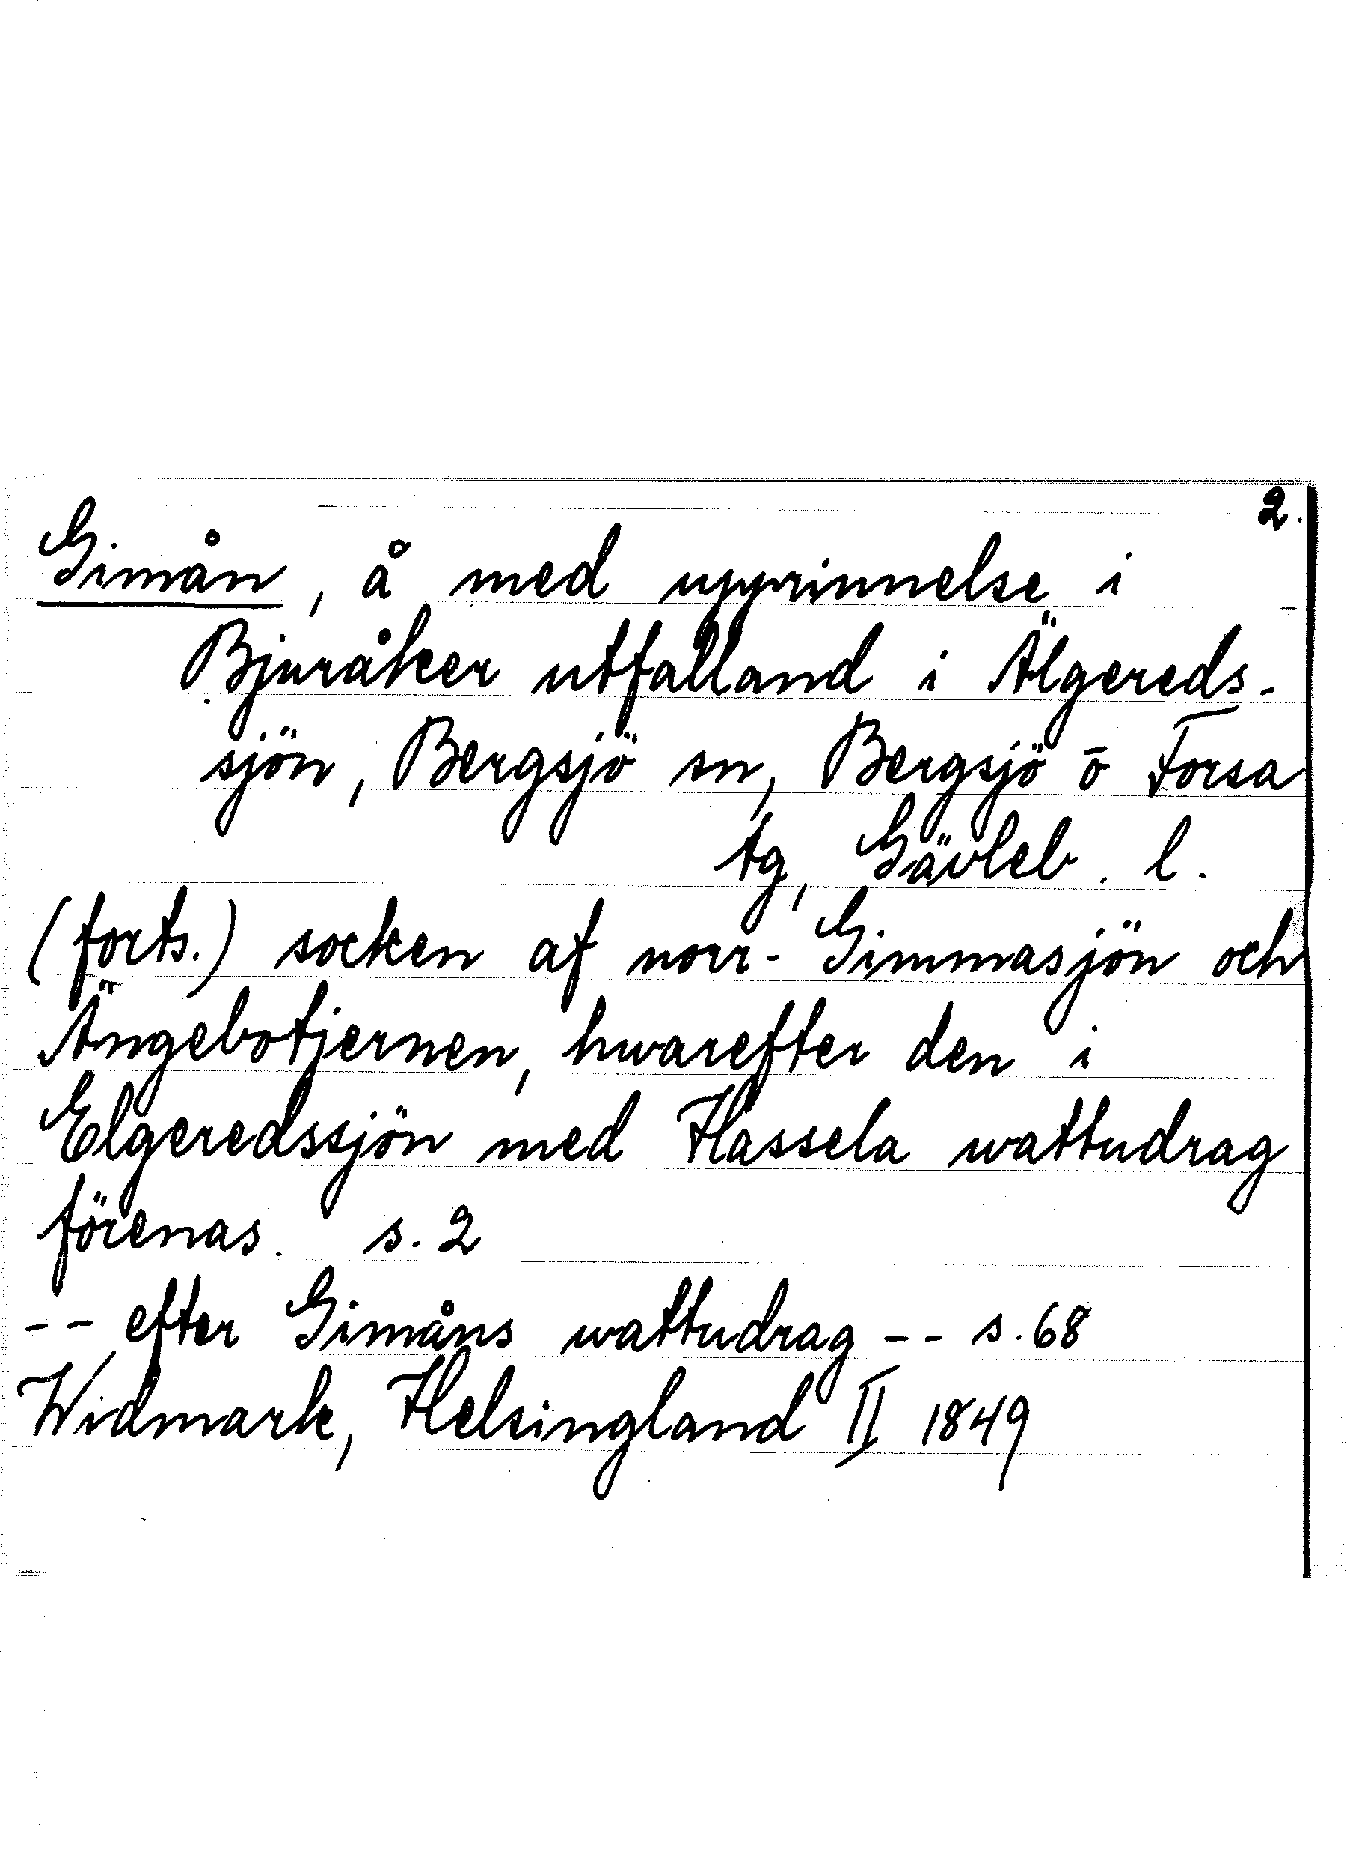 2.
Gimån, å med upprinnelse i
Bjuråker utfalland i Älgereds-
sjön, Bergsjö sn, Bergsjö o Forsa
tg, Gävleb. l.
(forts.) socken af norr-Gimmasjön och
Ängebotjernen, hwarefter den i
Elgeredssjön med Hassela wattudrag
förenas. s. 2
-- efter Gimåns wattudrag -- s. 68
Widmark, Helsingland II 1849